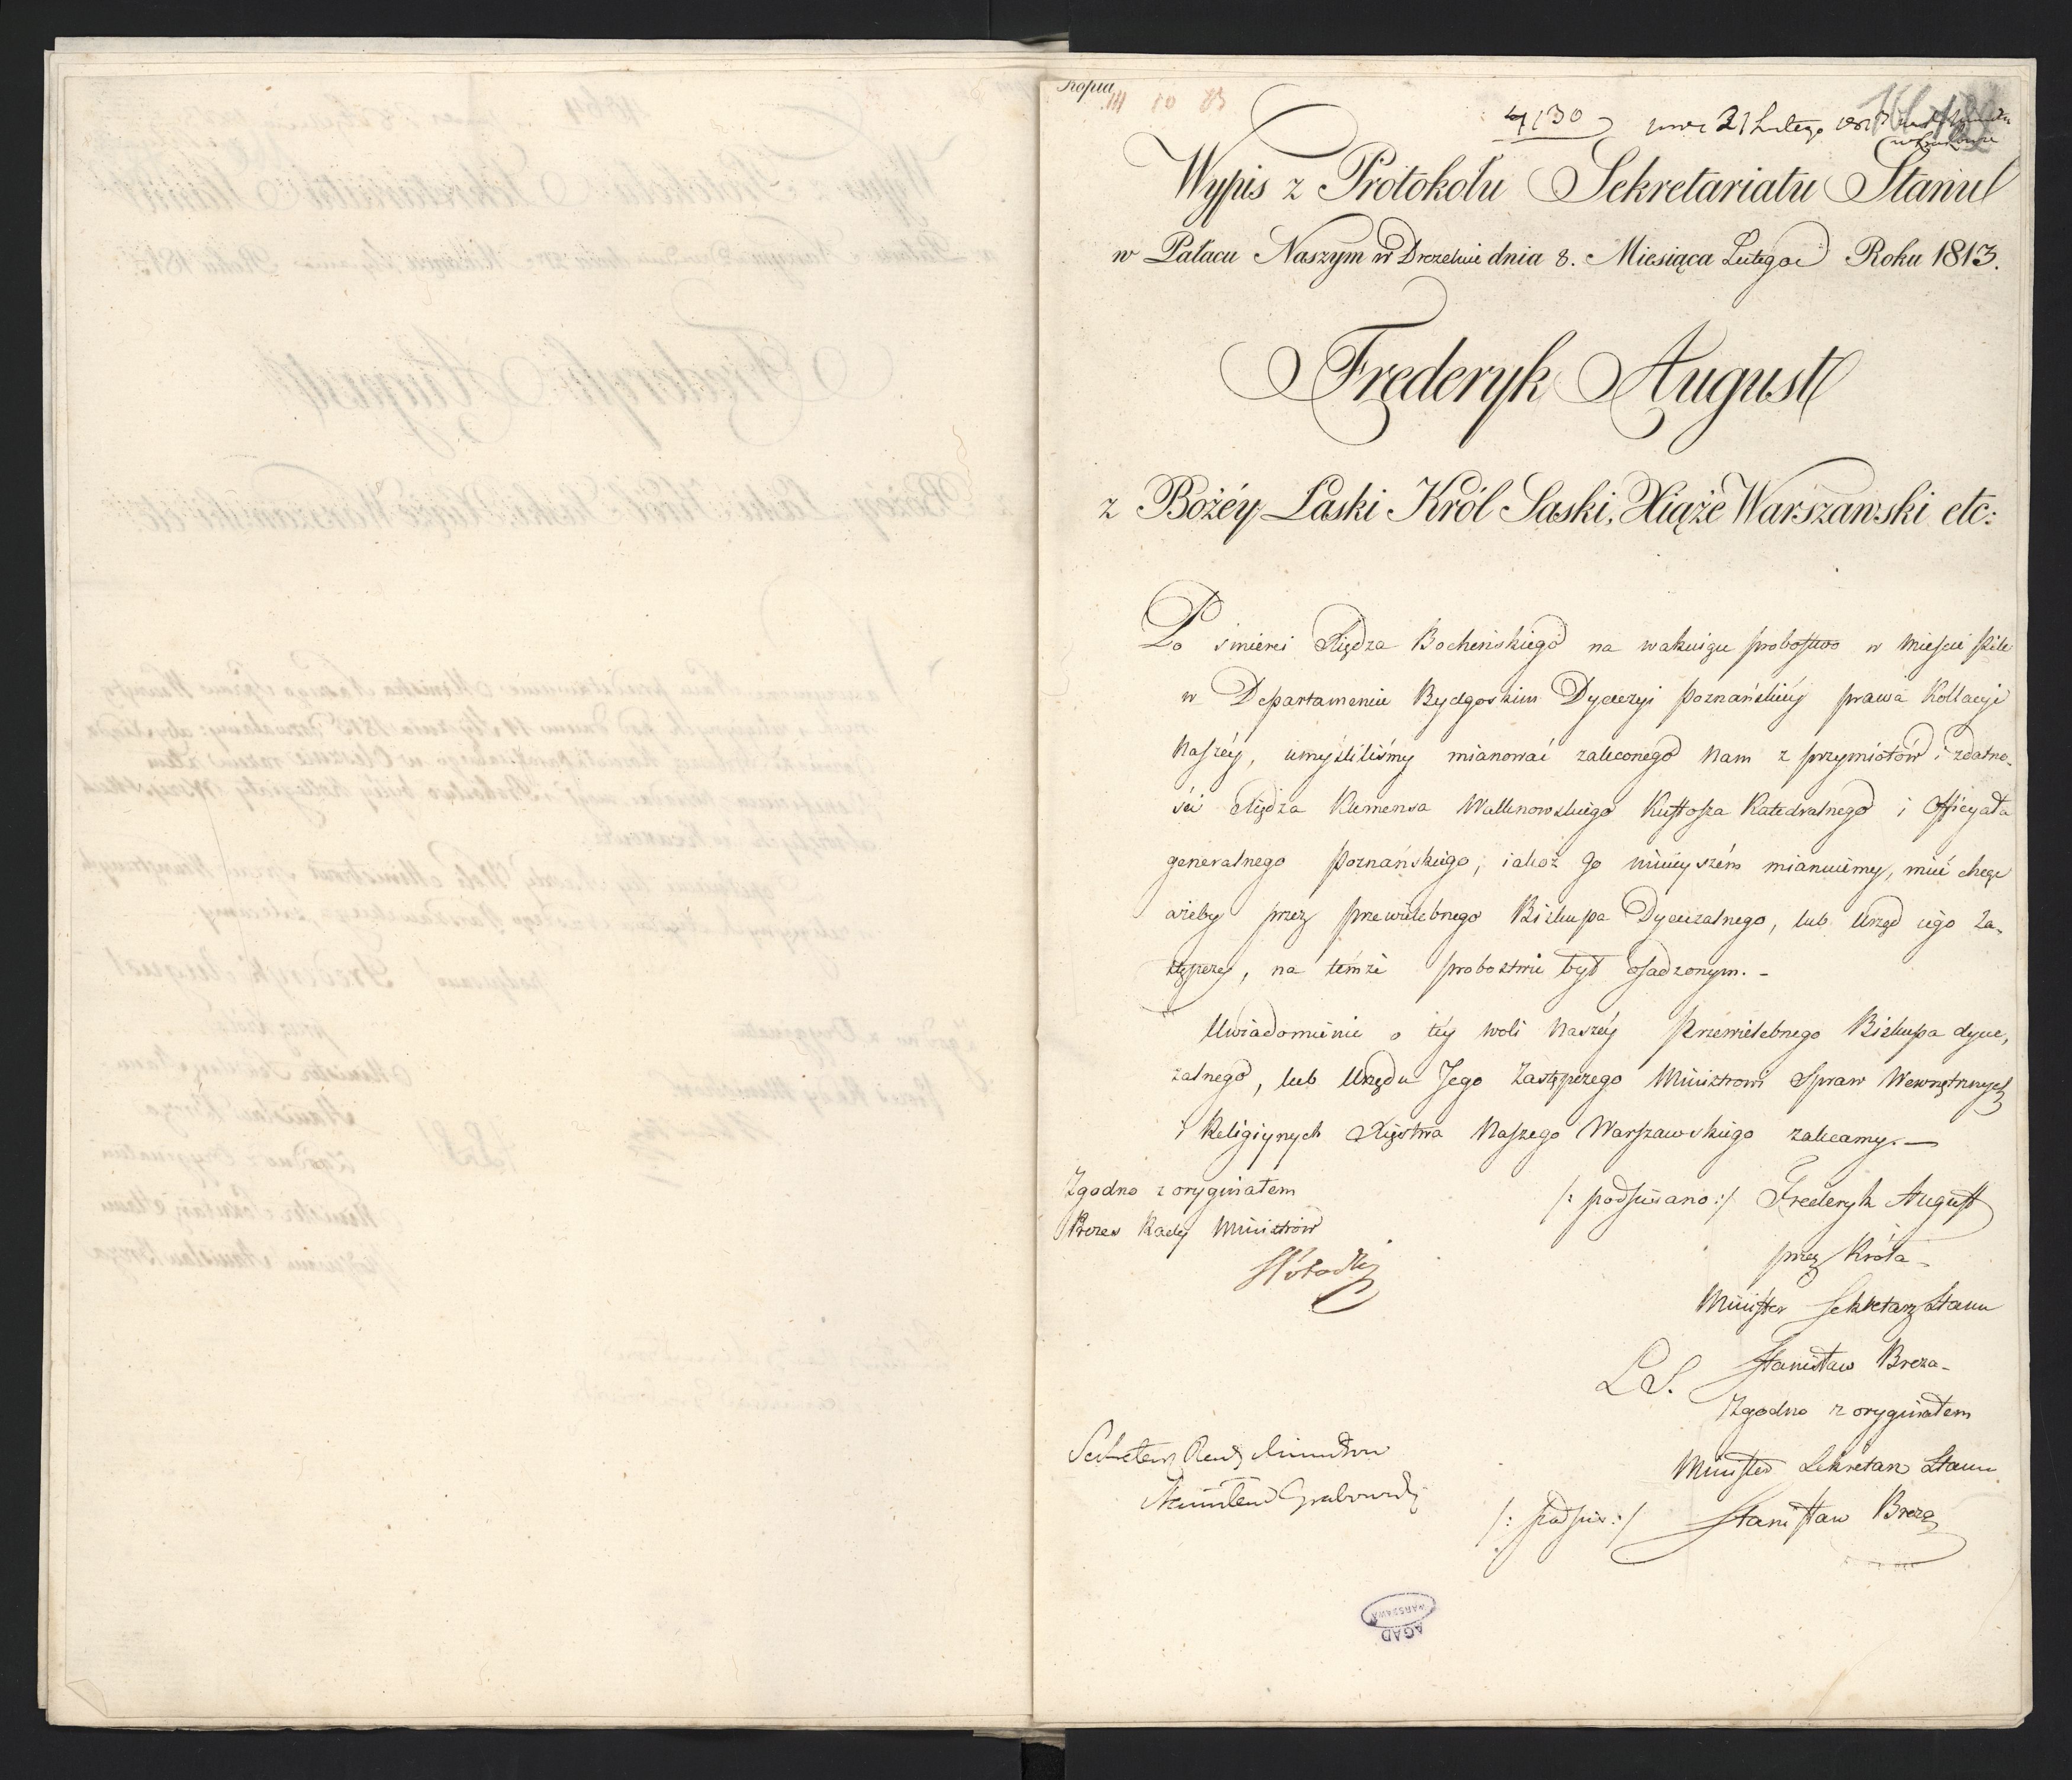 Kopia
4130
21 Lutego
Wypis z Protokołu Sekretariatu Stanu
w Pałacu Naszym w Dreznie dnia 8. Miesiąca Lutego Roku 1813.
Frederyk August
z Bożéy Łaski Król Saski, Xiąże Warszawski etc:
Po śmierci Xiędza Bocheńskiego na wakuiące probostwo w mieście Pile
w Departamencie Bydgoskim Dyecezyi Poznańskiéy prawa Kollacyi
Naszéy, umyśliliśmy mianować zaleconego Nam z przymiotów i zdatno-
ści Xiędza Klemensa Wallknowskiego Kustosza Katedralnego i Officyała
generalnego Poznańskiego, iakoż go ninieyszém mianuiemy, mieć chcąc
ażeby przez Przewielebnego Biskupa Dyecezalnego, lub Urząd iego za-
stępczy, na témże probostwie był osadzonym. -
Uwiadomienie o téy woli Naszéy Przewielebnego Biskupa dyece-
zalnego, lub Urzędu Jego zastępczego Ministrowi Spraw Wewnętrznych
i Religiynych Xięstwa Naszego Warszawskiego zalecamy. —
Zgodno z oryginałem
/: podpisano :/ Frederyk August
Prezes Rady Ministrów
przez Króla -
Minister Sekretarz Stanu
L.S. Stanisław Breza -
Zgodno z oryginałem
Sekretarz Rady Ministrów
Minister Sekretarz Stanu
Grabowski
/: podpis :/ Stanisław Breza
WARSZAWA
AGAD